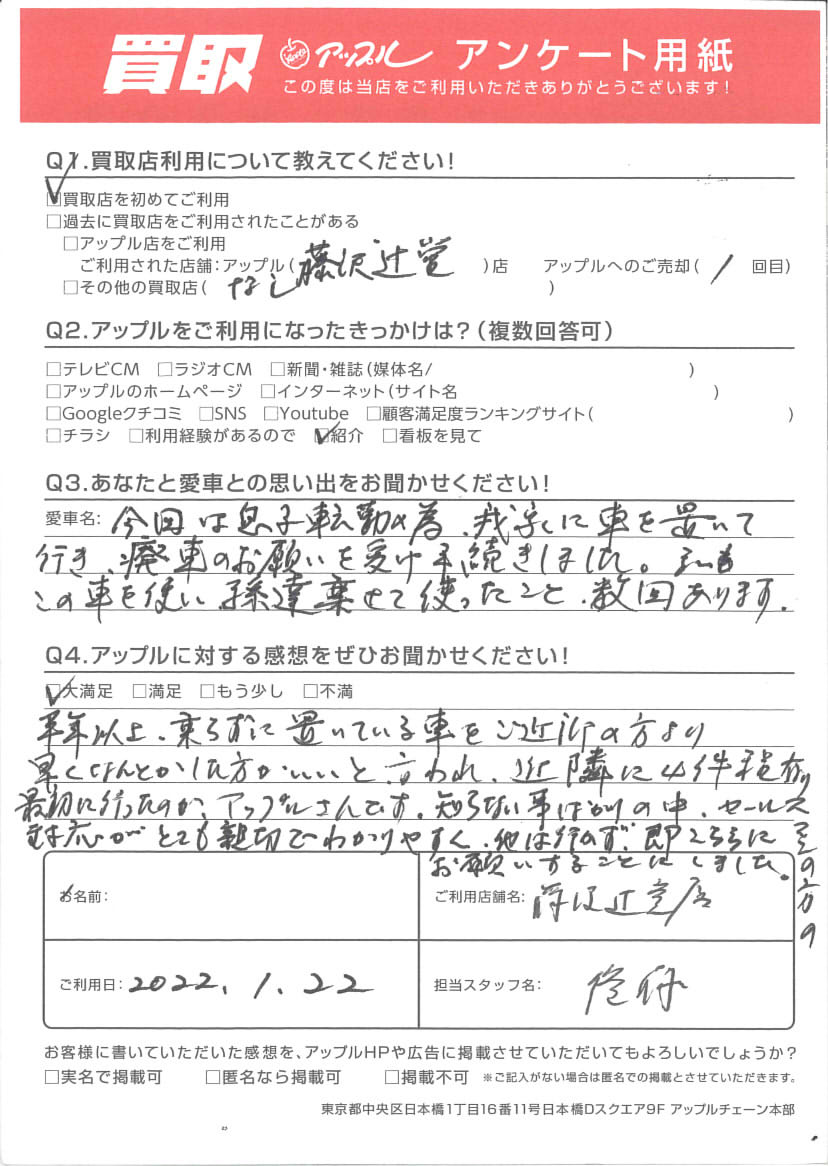 買取 アップル アンケート用紙
この度は当店をご利用いただきありがとうございます!
Q1.買取店利用について教えてください!
☑買取店を初めてご利用
□過去に買取店をご利用されたことがある
□アップル店をご利用
ご利用された店舗:アップル(藤沢辻堂)店 アップルへのご売却(1回目)
□その他の買取店(なし)
Q2.アップルをご利用になったきっかけは?(複数回答可)
□テレビCM □ラジオCM □新聞・雑誌(媒体名/ )
□アップルのホームページ □インターネット(サイト名 )
□Googleクチコミ □SNS □Youtube □顧客満足度ランキングサイト( )
□チラシ □利用経験があるので ☑紹介 □看板を見て
Q3.あなたと愛車との思い出をお聞かせください!
愛車名: 今回は息子転勤の為、我家に車を置いて
行き、廃車のお願いを受け手続きしました。私も
この車を使い孫達乗せて使ったこと、数回あります。
Q4.アップルに対する感想をぜひお聞かせください!
☑大満足 □満足 □もう少し □不満
半年以上、乗らずに置いている車をご近所の方より
早くなんとかした方がいいと言われ、近隣に4件程有り
最初に行ったのが、アップルさんです。知らない事ばかりの中、セールス
の方の
対応がとても親切でわかりやすく、他は行かず、即こちらに
お願いすることにしました。
お名前:
ご利用店舗名: 藤沢辻堂店
ご利用日: 2022. 1. 22
担当スタッフ名:
お客様に書いていただいた感想を、アップルHPや広告に掲載させていただいてもよろしいでしょうか?
□実名で掲載可 □匿名なら掲載可 □掲載不可 ※ご記入がない場合は匿名での掲載とさせていただきます。
東京都中央区日本橋1丁目16番11号日本橋Dスクエア9F アップルチェーン本部